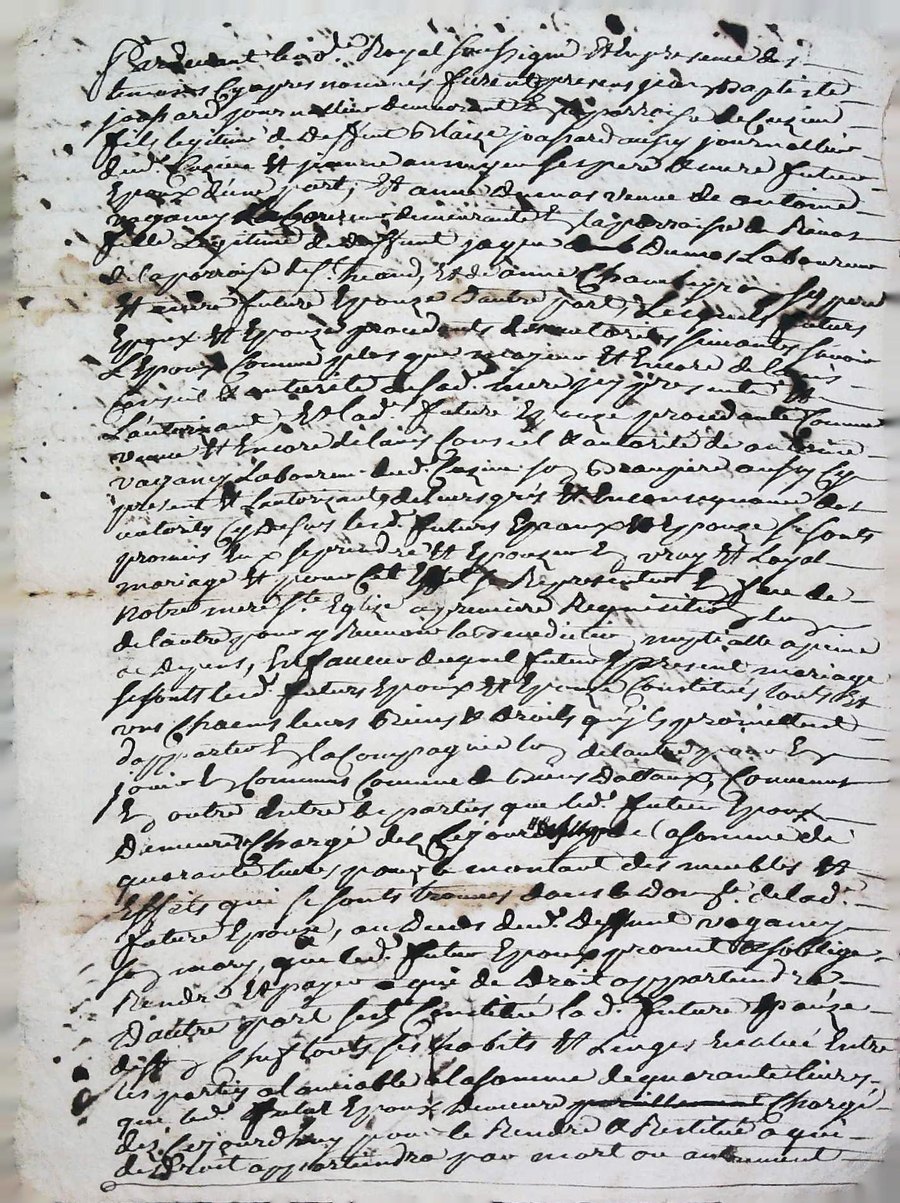 Pardevant le no.re Royal soussigné Et En presence des
temoins Cy apres nommés furent presens jean Baptiste
jouhard journallier demeurant En la parroise de
fils legitime de deffunt Blaize jouhard aussy journallier
dud. Et jeanne ses pere & mere futur
Epoux d'une part, Et anne dumas veuve de antoine
vaganey Laboureur demeurante En la parroise de
fille Legitime de deffunt jaque Dumas Laboureur
de la parroise de St. Et de anne ses pere
Et mere future Epouze d'autre part, Lesquels futurs
Epoux Et Epouze procedants des autorités suivantes savoir
L'Epoux Comme plus que majeur Et Encore de l'avis
Conseil & autorité de sad. mere jcy presente Et
L'autorisant, Et lad. future Epouze procedante Comme
veuve Et Encore de l'avis Conseil & autorité de antoine
vaganey Laboureur dud. son Beaupère aussy Cy
present Et L'autorisant, de leurs grés Et En Consequance des
autorités Cy dessus lesd. futurs Epoux Et Epouze se sont
promis Eux se prendre Et Epouzer En vray Et Loyal
mariage Et pour Cet Effet se Representer En face de
Notre mere Ste. Eglise a premiere Requisition l'un
de l'autre pour y Recevoir la Benediction nuptialle a peine
de depens, En faveur duquel futur Et present mariage
se sont lesd. futurs Epoux Et Epouze Constitués touts Et
uns Chacuns leurs Biens & droits qu'ils promettent
d'apporter En la Compagnie l'un de l'autre pour En
jouir En Communs Comme de Biens dottaux, Convenus
En outre Entre les parties que led. futur Epoux
Demeure Chargé des Cejourd'huy de la somme de
quarante livres pour le montant des meubles Et
Effets qui se sont trouvés dans le Domlle. de lad.
future Epouze, au Deceds dud. Deffunt vaganey
son mary, que led. futur Epoux promet & s'oblige
Rendre Et payer a qui de Droit appartiendra
D'autre part s'est Constitué lad. future Epouze
de son Chef touts ses habits Et Linges Evalué Entre
les parties a l'amiable a la somme de quarante livres
que led. futur Epoux Demeure Chargé
des Cejourd'huy pour le Rendre & Restituer a qui
de Droit appartiendra par mort ou autrement